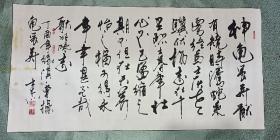 神龜雖壽猷
有竟時騰蛇乘
霧終為土灰老
驥伏櫪志在千
里烈士暮年壯
心不已盈縮之
期不但在天養
怡之福可得永
年幸甚至哉
歌以詠志
曹操
龜雖壽